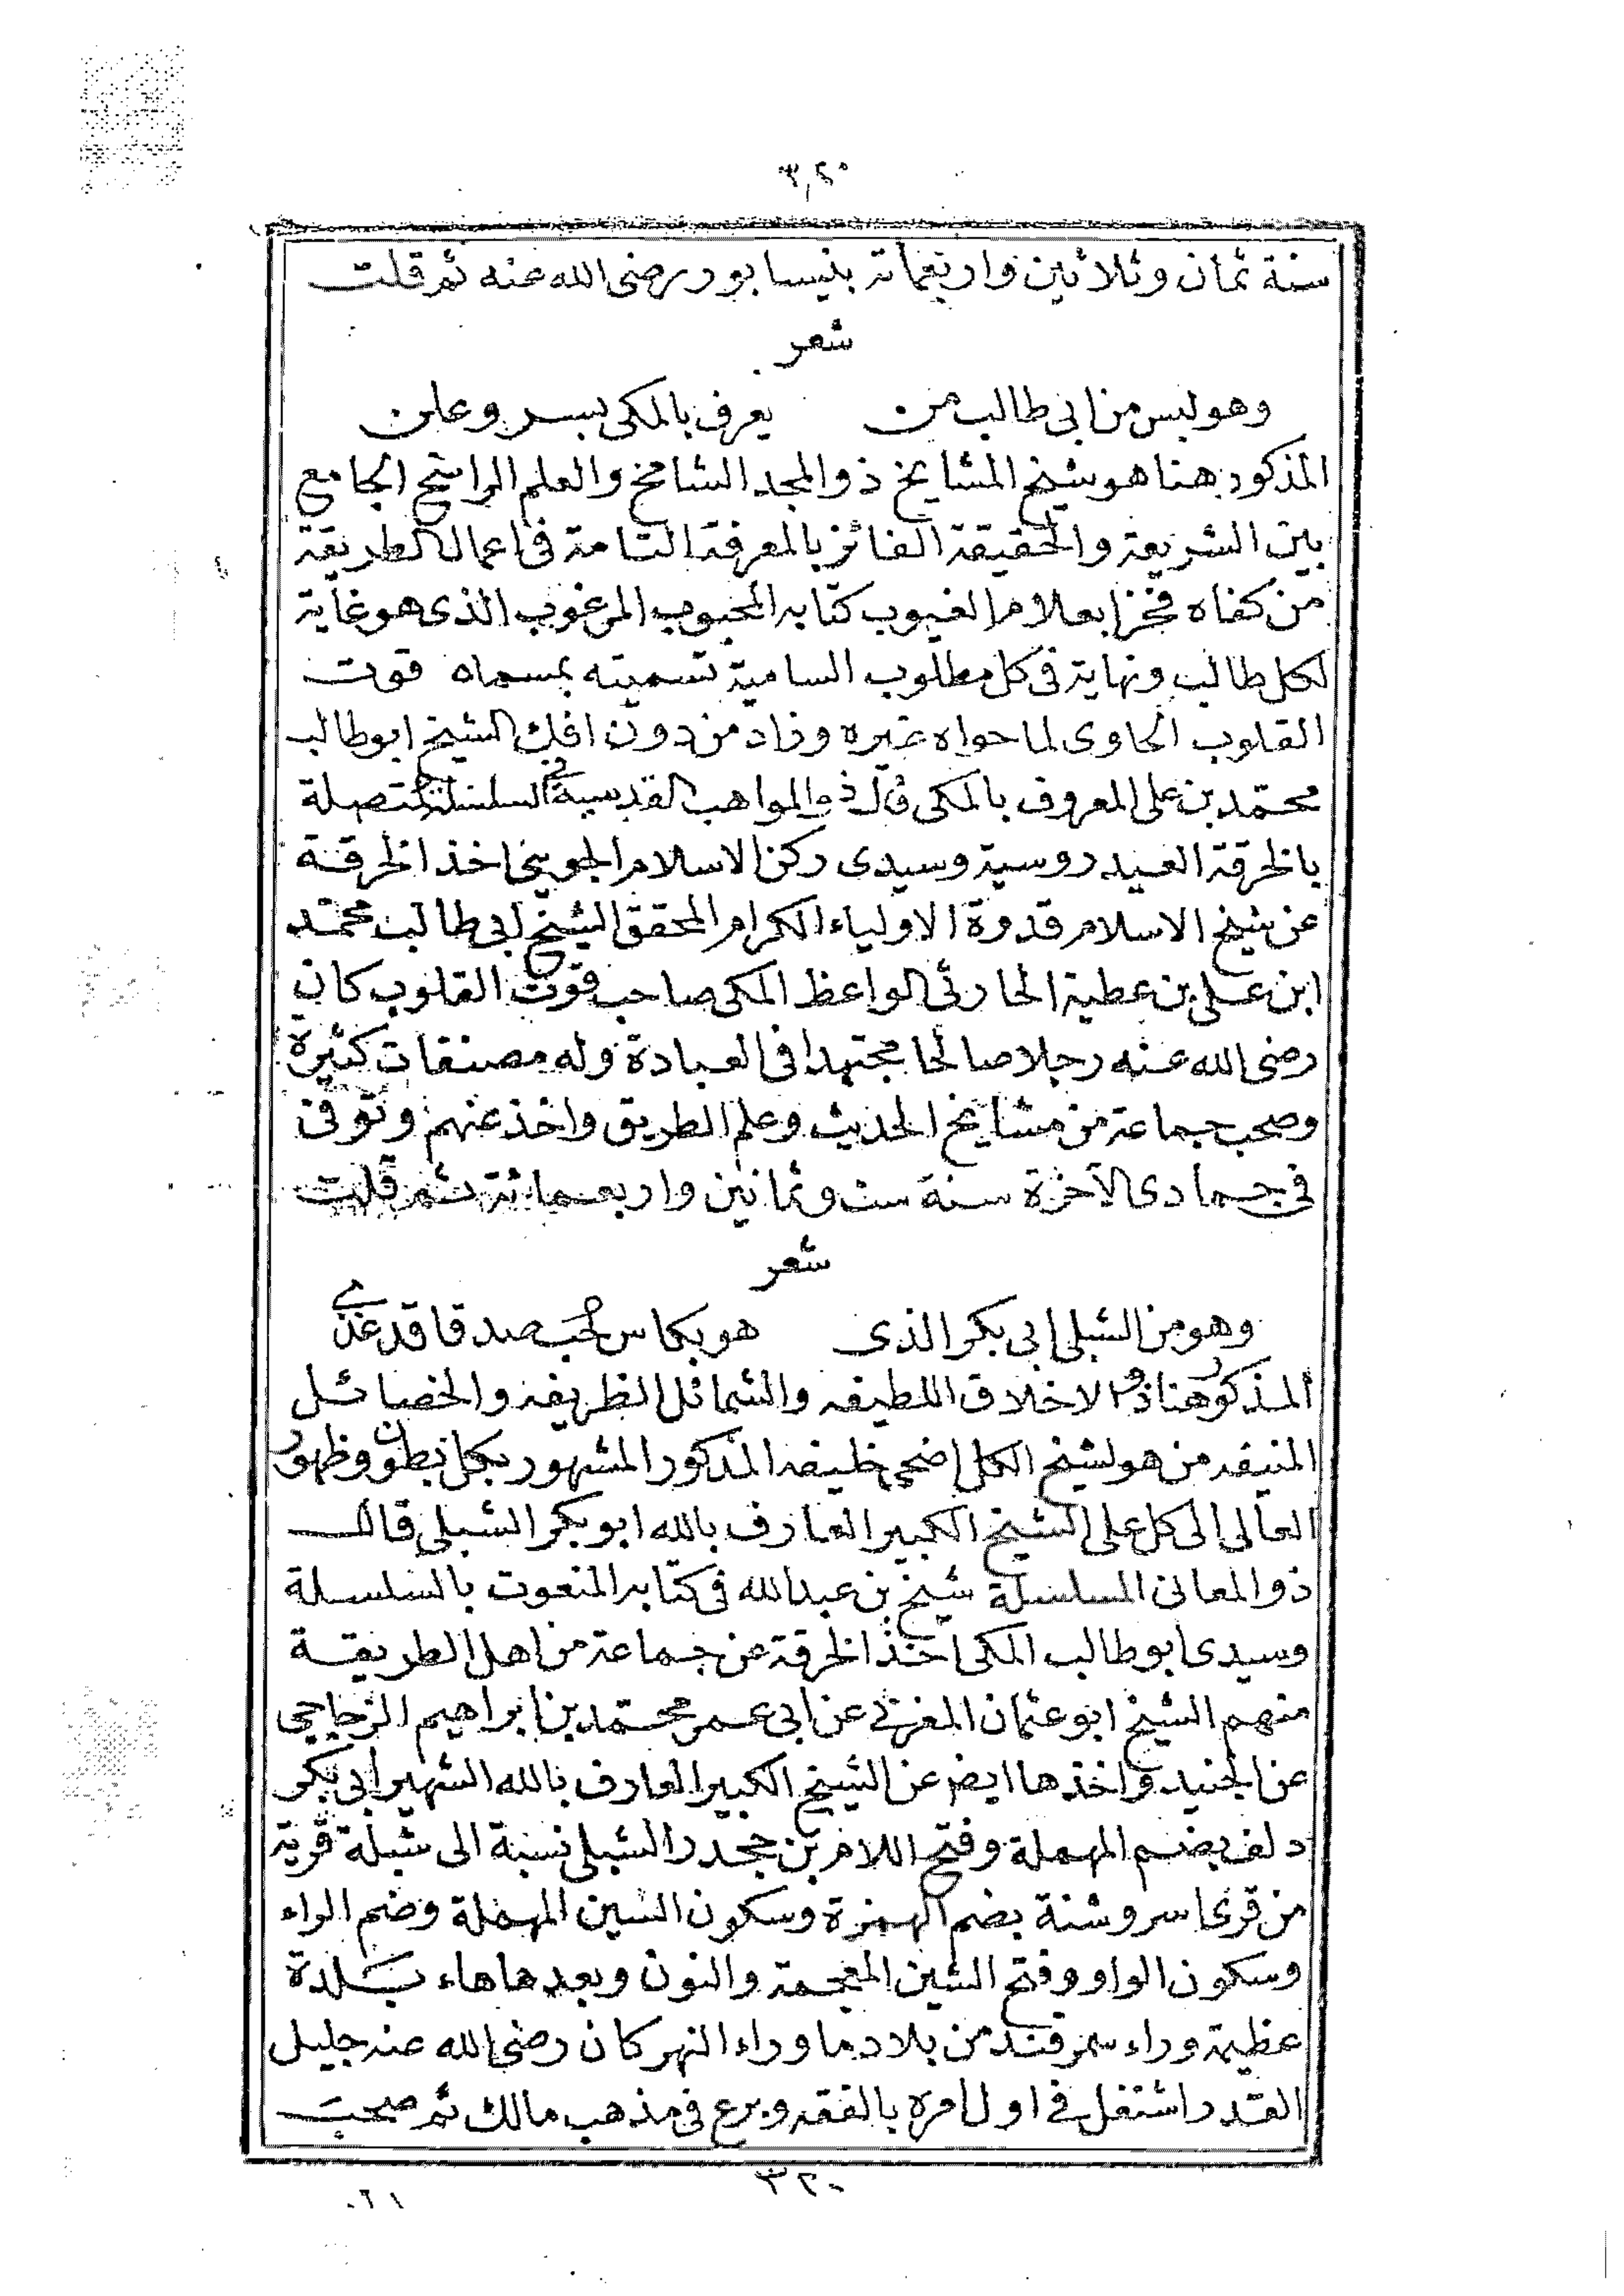 ٣٢٠
سنة ثمان وثلاثين واربعمائة بنيسابور رضى الله عنه ثم قلت
شعر
وهو لبس من ابى طالب من يعرف بالمكى بسر وعلن
المذكور هنا هو شيخ المشايخ ذو المجد الشامخ والعلم الراسخ الجامع
بين الشريعة والحقيقة الفائز بالمعرفة التامة فى اعمال الطريقة
من كفاه فخرا بعلام الغيوب كتابه المحبوب المرغوب الذى هو غاية
لكل طالب ونهاية فى كل مطلوب السامية تسميته بمسماه قوت
القلوب الحاوى لما حواه غيره وزاد من دون افك الشيخ ابو طالب
محمد بن على المعروف بالمكى قال ذو المواهب القدسية فى السلسلة المتصلة
بالخرقة العيدروسية وسيدى ركن الاسلام الجوينى اخذ الخرقة
عن شيخ الاسلام قدوة الاولياء الكرام المحقق الشيخ ابى طالب محمد
ابن على بن عطية الحارثى الواعظ المكى صاحب قوت القلوب كان
رضى الله عنه رجلا صالحا مجتهدا فى العبادة وله مصنفات كثيرة
وصحب جماعة من مشايخ الحديث وعلم الطريق واخذ عنهم وتوفى
فى جمادى الآخرة سنة ست وثمانين واربعمائة ثم قلت
شعر
وهو من الشبلى ابى بكر الذى هو بكاس حب صدقا قد غذى
المذكور هنا ذو الاخلاق اللطيفه والشمائل الظريفه والخصائل
المنيفه من هو لشيخ الكل اضحى خليفه المذكور المشهور بكل بطون وظهور
العالى الى كل على الشيخ الكبير العارف بالله ابو بكر الشبلى قال
ذو المعانى المسلسلة شيخ بن عبد الله فى كتابه المنعوت بالسلسلة
وسيدى ابو طالب المكى اخذ الخرقة عن جماعة من اهل الطريقة
منهم الشيخ ابو عثمان المغربي عن ابى عمر محمد بن ابراهيم الزجاجى
عن الجنيد واخذها ايض عن الشيخ الكبير العارف بالله الشهير ابى بكر
دلف بضم المهملة وفتح اللام بن جحدر الشبلى نسبة الى شبلة قرية
من قرى اسروشنة بضم الهمزة وسكون السين المهملة وضم الراء
وسكون الواو وفتح الشين المعجمة والنون وبعدها هاء بلدة
عظيمة وراء سمرقند من بلاد ما وراء النهر كان رضى الله عنه جليل
القدر اشتغل في اول امره بالفقه وبرع فى مذهب مالك ثم صحب
٣٢٠